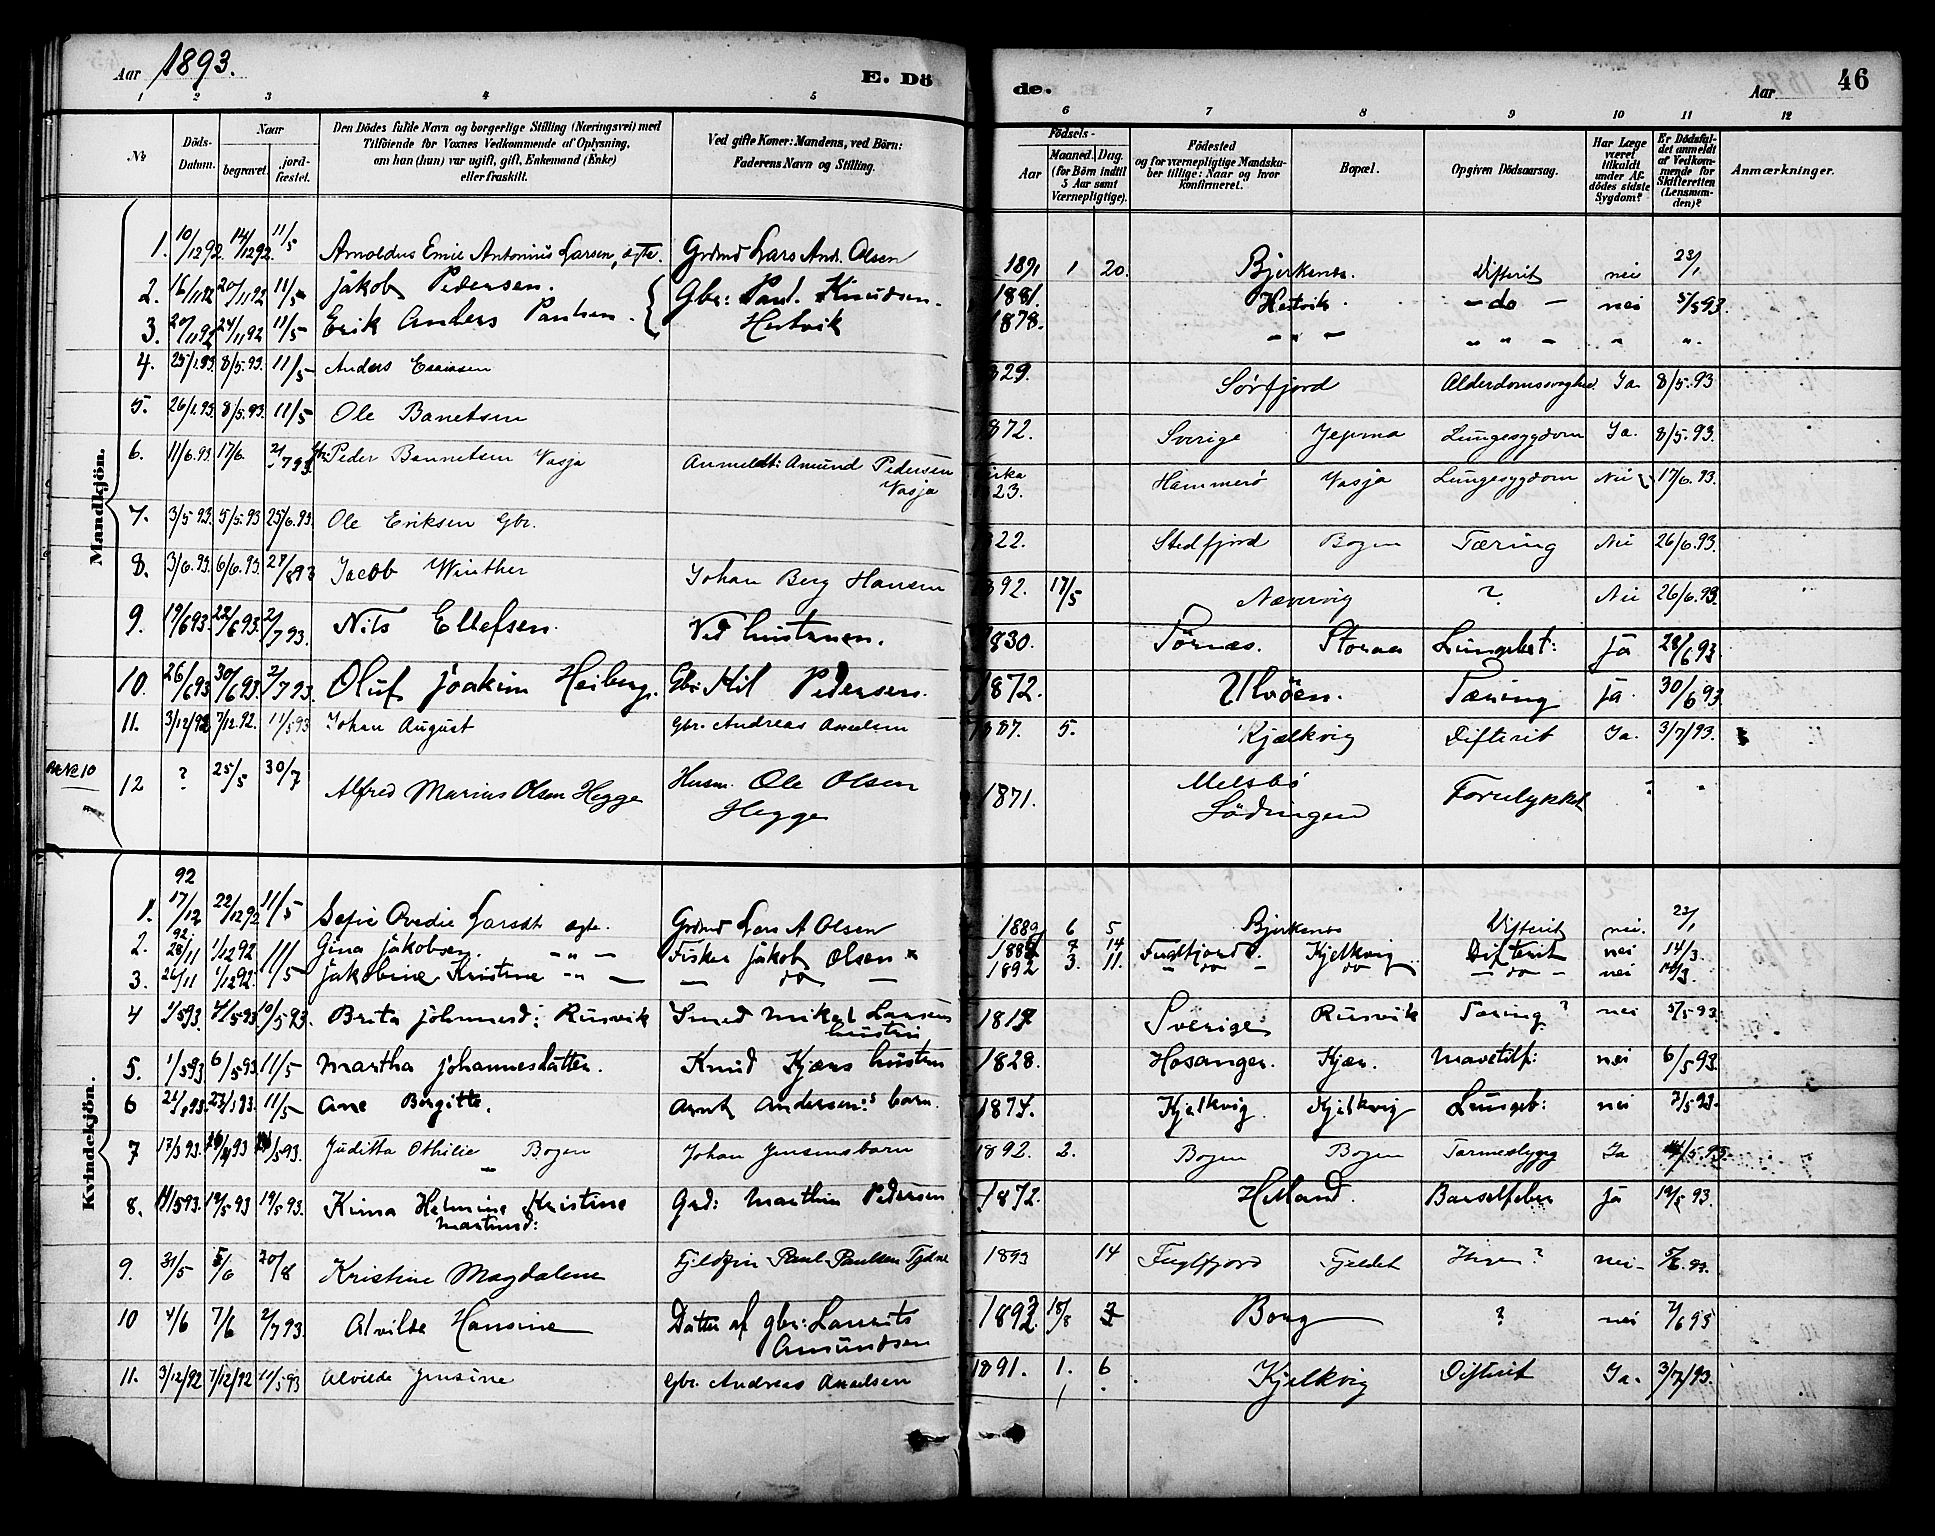 Aar 1893. E. Dö de. Aar 46
1 2 3 4 5 6 7 8 9 10 11 12
No Döds-Datum. Naar begravet. jord-fæstet. Den Dödes fulde Navn og borgerlige Stilling (Næringsvei) med Tilföiende for Voxnes Vedkommende af Oplysning, om han (hun) var ugift, gift, Enkemand (Enke) eller fraskilt. Ved gifte Koner: Mandens, ved Börn: Faderens Navn og Stilling. Födsels- Aar Maaned. Dag. (for Börn indtil 5 Aar samt Værnepligtige). Födested og for værnepligtige Mandskaber tillige: Naar og hvor konfirmeret. Bopæl. Opgiven Dödsaarsag. Har Læge været tilkaldt under Afdödes sidste Sygdom? Er Dödsfaldet anmeldt af Vedkommende for Skifteretten (Lensmanden)? Anmærkninger.
Mandkjön.
1. 10/12 92. 14/12 92. 11/5 Arnoldus Emil Antonius Larsen, ægte. Grdmd Lars And. Olsen 1891 1 20. Bjerkenes. Difterit nei 23/1
2. 16/11 92 20/11 92 11/5 Jakob Pedersen. Gbr: Paul. Knudsen. 1881. Hestvik. - do - nei 5/5 93.
3. 20/11 92 24/11 92 11/5 Erik Anders Paulsen. Hestvik 1878. - " - " " - " "
4. 25/1 93. 8/5. 93. 11/5 Anders Esaiasen 1829. Sörfjord Alderdomssvaghed Ja. 8/5. 93.
5. 26/1. 93. 8/5. 93. 11/5 Ole Banetsen 1872. Sverige Lungesygdom Ja. 8/5. 93.
6. 11/6. 93. 17/6. 2/7 93. Peder Bannetsen Vasja Anmeldt: Amund Pedersen Vasja 23. Hammerö Vasja Lungesygdom Nei 17/6. 93.
7. 3/5 93. 5/5. 93 25/6. 93. Ole Eriksen Gbr. 1822. Stedfjord Bogen Tæring Nei 26/6 93.
8. 3/6. 93. 6/6. 93. Jacob Winther Johan Berg Hansen 1892. 17/5 ? Nei 26/6. 93.
9. 19/6 93. 22/6 93. 2/7 93. Nils Ellefsen. Ved hustruen. 1830. Törnæs. Storaa Lungebet: Ja 28/6 93
10. 26/6 93 30/6 93. 2/7 93. Oluf Joakim Heiberg. Gbr: Kil Pedersen. 1872. Ulvöen. Tæring ja. 30/6 93.
11. 3/12/92 7/12. 92. 11/5 93 Johan August Gbr. Andreas Amelsen 1887. 5. Kjælkvig Difterit Ja. 3/7/93.
No 10
12 ? 25/5 30/7 Alfred Marius Olsen Hegge Husm. Ole Olsen Hegge 1871. Melsbö Lödingen Forulykket
Kvindekjön.
92
1. 17/12 22/12 92 11/5 Sefie Ovedie Larsdt ægte. Grdmd Lars A Olsen 1889 6 5 Bjerkenes Difterit nei. 23/1
2. 92. 28/11 1/12 92 11/5 Gina Jakobsen. - " - Fisker Jakob Olsen 14 Fuglfjord. Kjelkvig Difterit nei 14/3.
3. 26/11 1/12 92. 11/5 Jakobine Kristine - " - - do - 1892 3. 11. - do - do - do - nei 14/3.
4 1/5 93. 4/5 93 10/5 93. Brita Johannesd: Rusvik Smed Mikal Larsens hustru Sverige Rusvik Tæring? nei 5/5 93.
5. 1/5 93 6/5 93. 11/5 Martha Johannesdatter. Knud Kjærs hustru 1828. Hosanger. Kjær. Mavetilf: nei 6/5 93.
6 23/1 93. 11/5 Ane Birgitte. Arnt Andersen:s barn. 1874. Kjelkvig. Kjelkvig Lungeb: nei 7/5 93.
7 13/3 93. Juditta Othilie Bogen Johan Jensens barn 1892. 2. Bogen Bogen Tarmeslyng Ja
8. 11/5 93. 19/5 93 19/5 93. Kima Helmine Kristine Martinsd: Grd: Marthin Pedersen 1872. Hetland. Barselfeber ja 19/5 93.
9. 31/5 5/6 20/8 Kristine Magdalene Paul Paulsen 1893 14 Fuglfjord Fjeldet ? nei 5/6. 93.
10 4/6 7/6 2/7 93. Alvilde Hansine Datter af gbr: Laurits Amundsen 1892. 18/8 Borg ? nei 7/6 93
11. 3/12/92 7/12/92 11/5 93 Alvilde Jensine Gbr. Andreas Amelsen 1891. 1. 6 Kjelkvig Difterit Ja. 3/7/93.